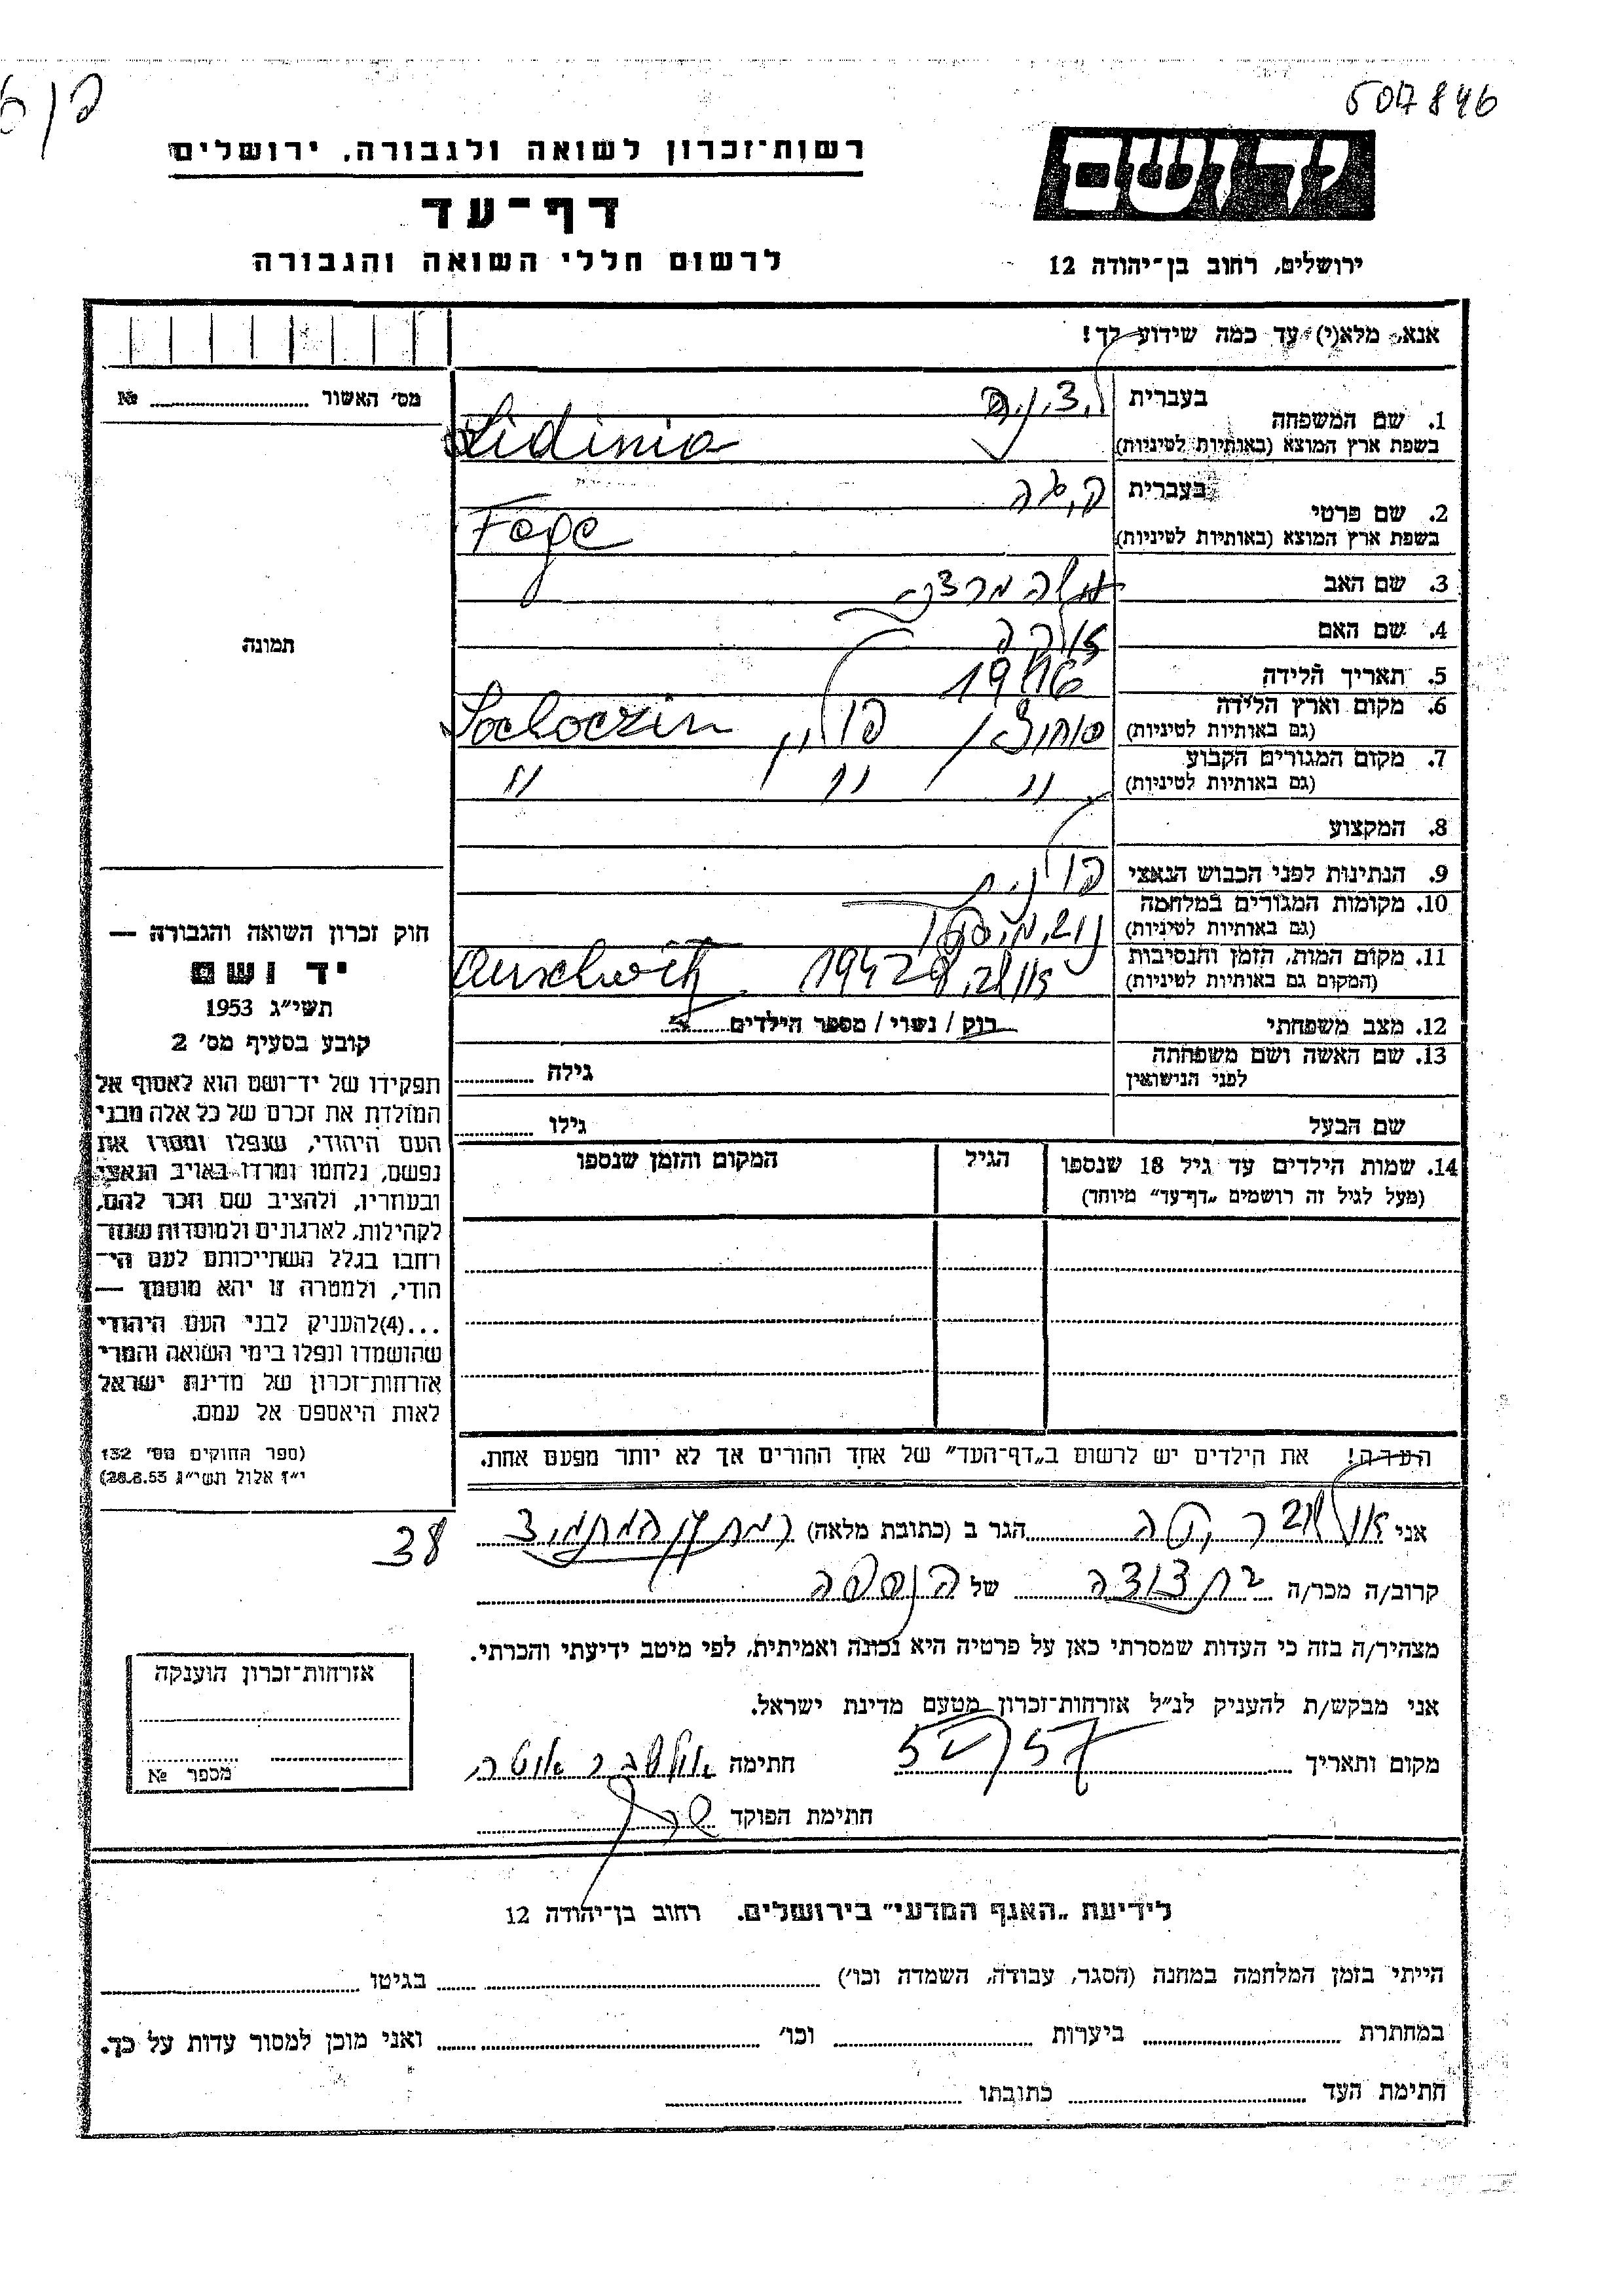 507846
רשות־זכרון לשואה ולגבורה, ירושלים
דף־עד
לרשום חללי השואה והגבורה
יד ושם
ירושלים, רחוב בן־יהודה 12
אנא, מלא(י) עד כמה שידוע לך!
מס' האשור № 
1. שם המשפחה
בעברית
בשפת ארץ המוצא (באותיות לטיניות) Lidinia
2. שם פרטי
בעברית
בשפת ארץ המוצא (באותיות לטיניות) Fege
3. שם האב
4. שם האם
5. תאריך הלידה 1916
6. מקום וארץ הלידה
(גם באותיות לטיניות) פולין Sochoczin
7. מקום המגורים הקבוע
(גם באותיות לטיניות) " " "
8. המקצוע
9. הנתינות לפני הכבוש הנאצי פולנית
10. מקומות המגורים במלחמה
(גם באותיות לטיניות)
11. מקום המות, הזמן והנסיבות
(המקום גם באותיות לטיניות) 1942 Auschwitz
12. מצב משפחתי רוק / נשוי / מספר הילדים
13. שם האשה ושם משפחתה
לפני הנישואין
גילה
שם הבעל גילו
14. שמות הילדים עד גיל 18 שנספו
(מעל לגיל זה רושמים „דף־עד" מיוחד)
הגיל
המקום והזמן שנספו
הערה! את הילדים יש לרשום ב„דף־העד" של אחד ההורים אך לא יותר מפעם אחת.
תמונה
חוק זכרון השואה והגבורה —
יד ושם
תשי"ג 1953
קובע בסעיף מס' 2
תפקידו של יד־ושם הוא לאסוף אל
המולדת את זכרם של כל אלה מבני
העם היהודי, שנפלו ומסרו את
נפשם, נלחמו ומרדו באויב הנאצי
ובעוזריו, ולהציב שם וזכר להם,
לקהילות, לארגונים ולמוסדות שנח־
רבו בגלל השתייכותם לעם הי־
הודי, ולמטרה זו יהא מוסמך —
...(4)להעניק לבני העם היהודי
שהושמדו ונפלו בימי השואה והמרי
אזרחות־זכרון של מדינת ישראל
לאות היאספם אל עמם.
(ספר החוקים מס' 132
י"ז אלול תשי"ג 28.8.53)
38
אני הגר ב (כתובת מלאה)
קרוב/ה מכר/ה בת דודה של הנספה
מצהיר/ה בזה כי העדות שמסרתי כאן על פרטיה היא נכונה ואמיתית, לפי מיטב ידיעתי והכרתי.
אני מבקש/ת להעניק לנ"ל אזרחות־זכרון מטעם מדינת ישראל.
מקום ותאריך חתימה
חתימת הפוקד
אזרחות־זכרון הוענקה
מספר №
לידיעת „האגף המדעי" בירושלים. רחוב בן־יהודה 12
הייתי בזמן המלחמה במחנה (הסגר, עבודה, השמדה וכו') בגיטו
במחתרת ביערות וכו' ואני מוכן למסור עדות על כך.
חתימת העד כתובתו